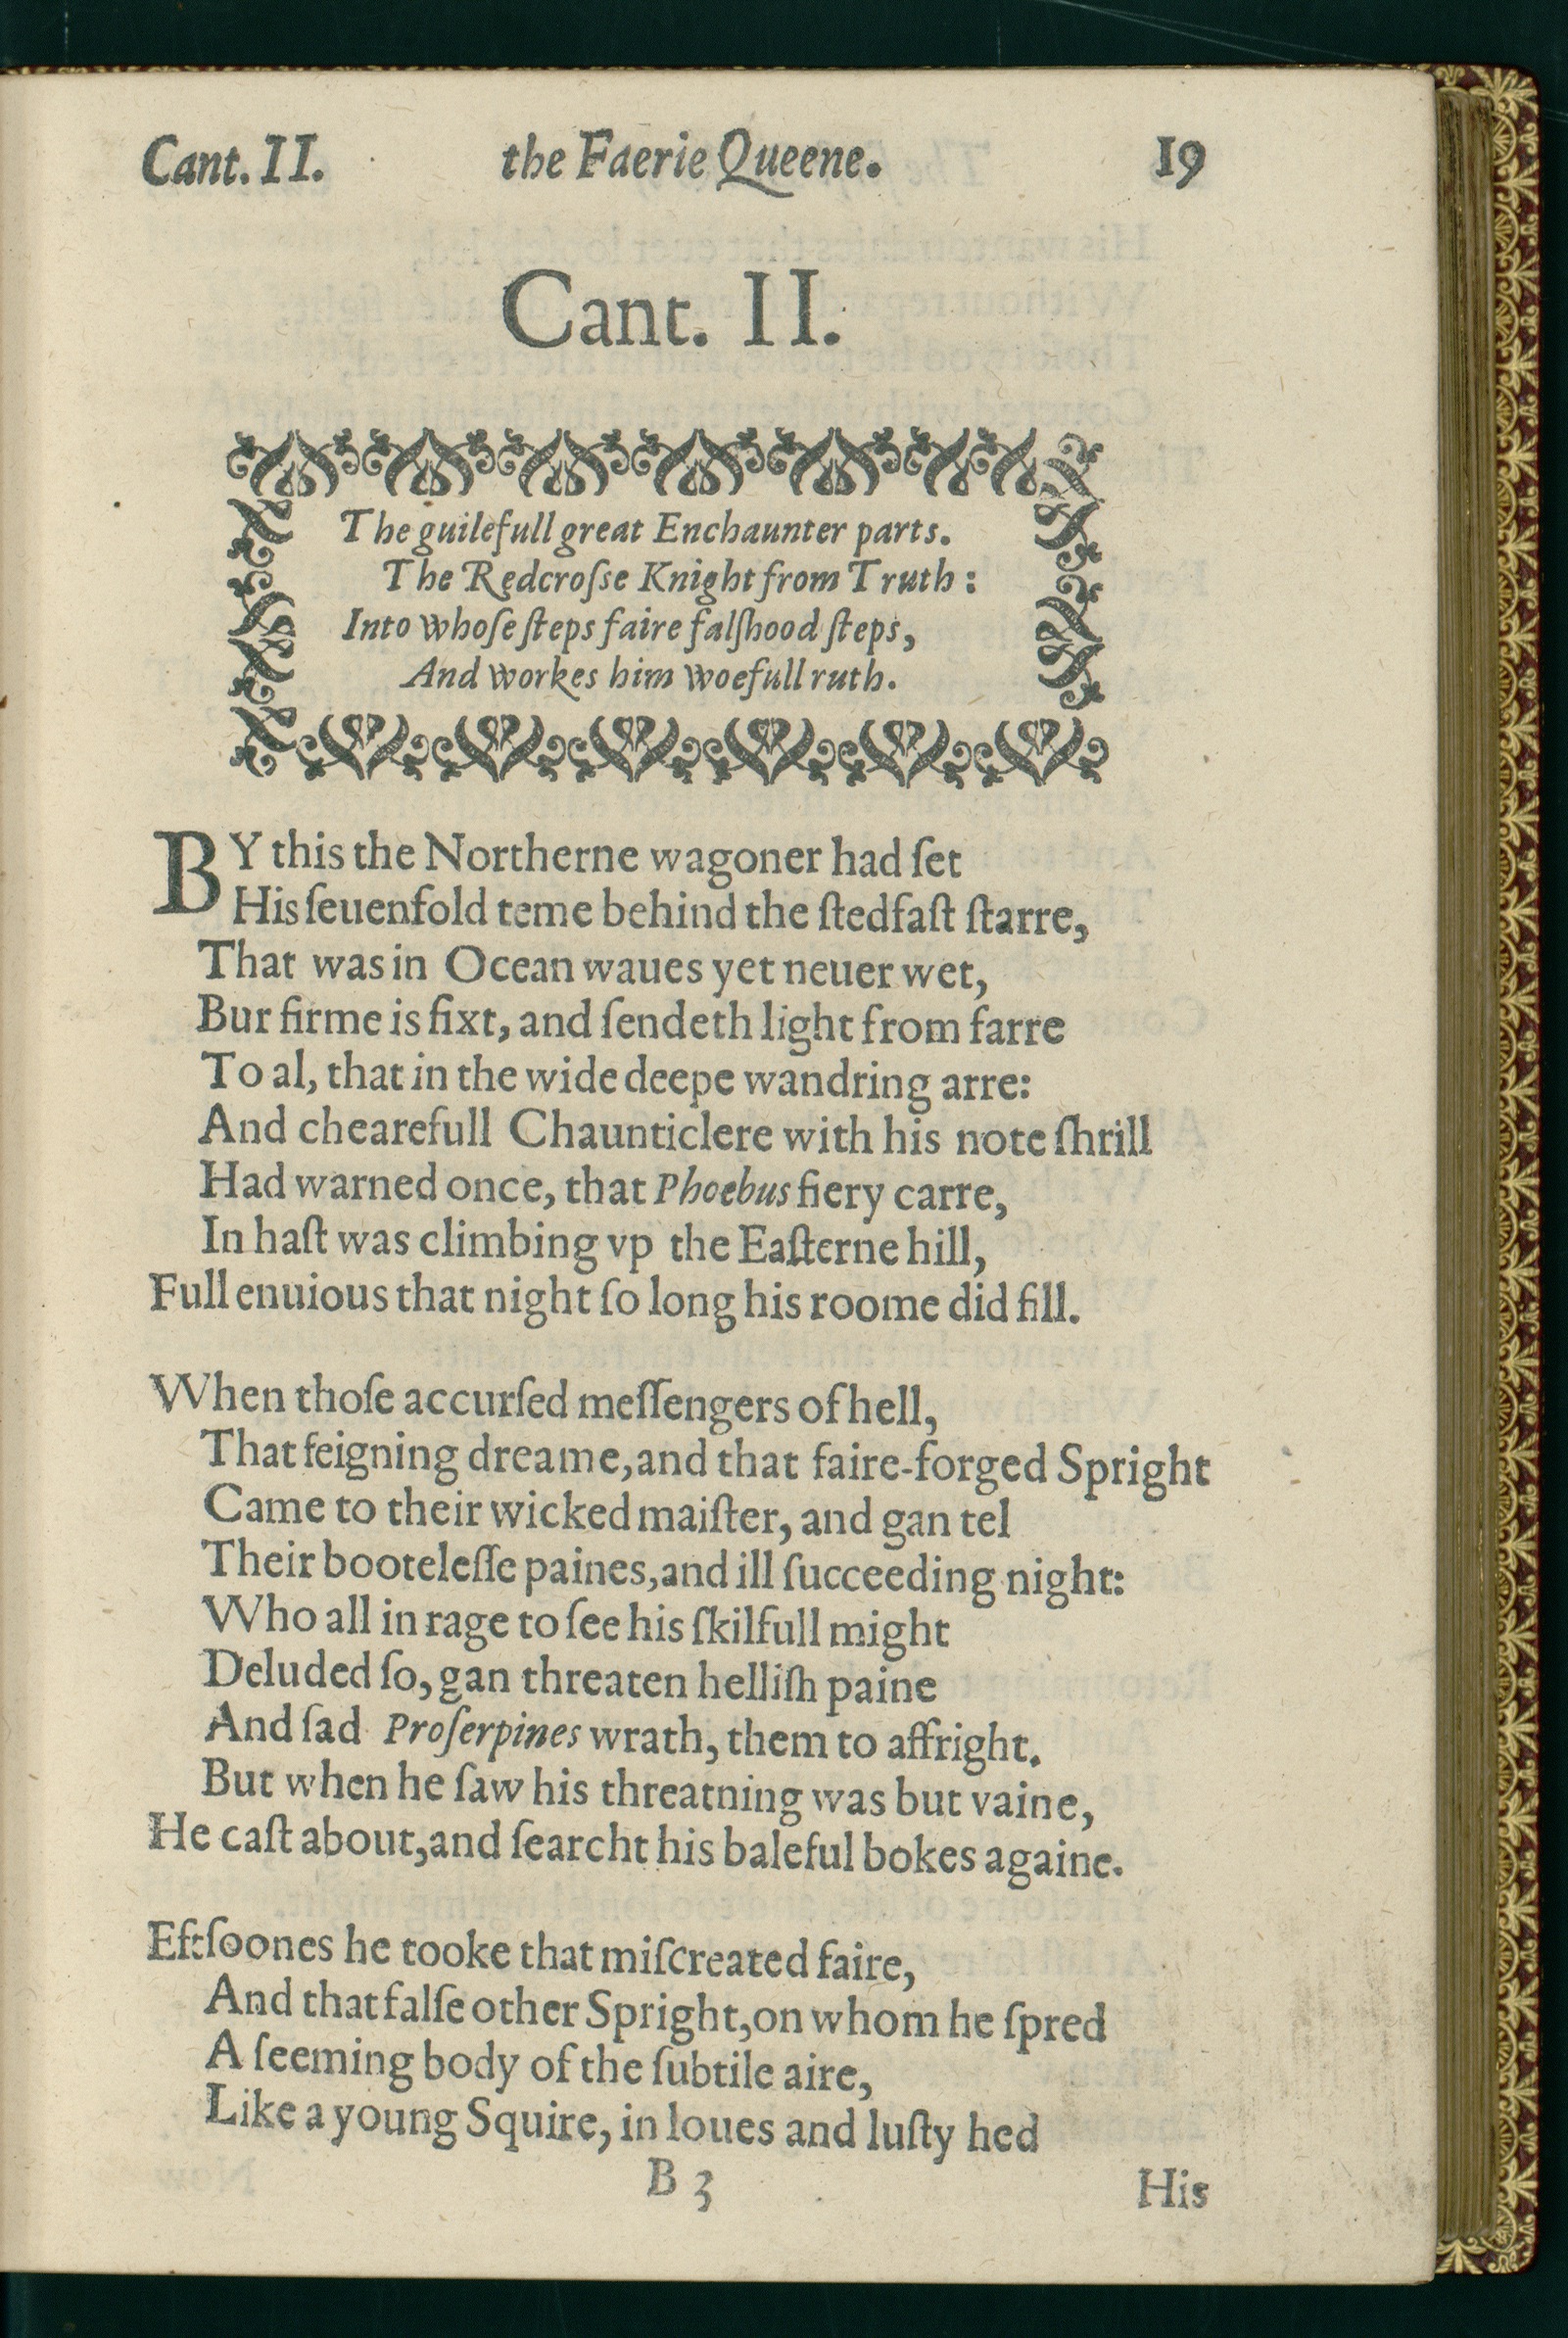 Cant. II. the Faerie Queene. 19
Cant. II.
The guilefull great Enchaunter parts.
The Redcroſse Knight from Truth:
Into whoſe ſteps faire falſhood ſteps,
And workes him woefull ruth.
BY this the Northerne wagoner had ſet
His ſeuenfold teme behind the ſtedfaſt ſtarre,
That was in Ocean waues yet neuer wet,
Bur firme is fixt, and ſendeth light from farre
To al, that in the wide deepe wandring arre:
And chearefull Chaunticlere with his note ſhrill
Had warned once, that Phoebus fiery carre,
In haſt was climbing vp the Eaſterne hill,
Full enuious that night ſo long his roome did fill.
When thoſe accurſed meſſengers of hell,
That feigning dreame, and that faire-forged Spright
Came to their wicked maiſter, and gan tel
Their booteleſſe paines, and ill ſucceeding night:
Who all in rage to ſee his ſkilfull might
Deluded ſo, gan threaten helliſh paine
And ſad Proſerpines wrath, them to affright.
But when he ſaw his threatning was but vaine,
He caſt about, and ſearcht his baleful bokes againe.
Eftſoones he tooke that miſcreated faire,
And that falſe other Spright, on whom he ſpred
A ſeeming body of the ſubtile aire,
Like a young Squire, in loues and luſty hed
B 3 His